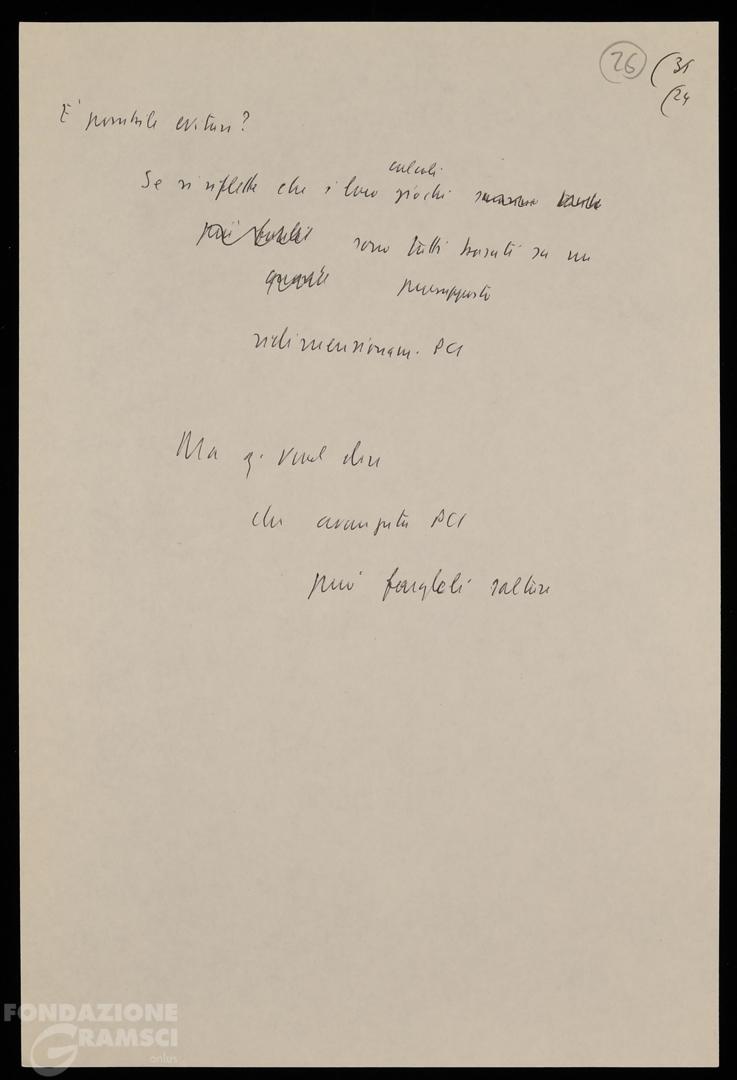 26 (31
(24
E' possibile evitare?
calcoli
Se si riflette che i loro giochi
sono tutti basati su un
presupposto
ridimensionam. PCI
Ma q. vuol dire
che avanzata PCI
può farglieli saltare
FONDAZIONE
GRAMSCI
onlus